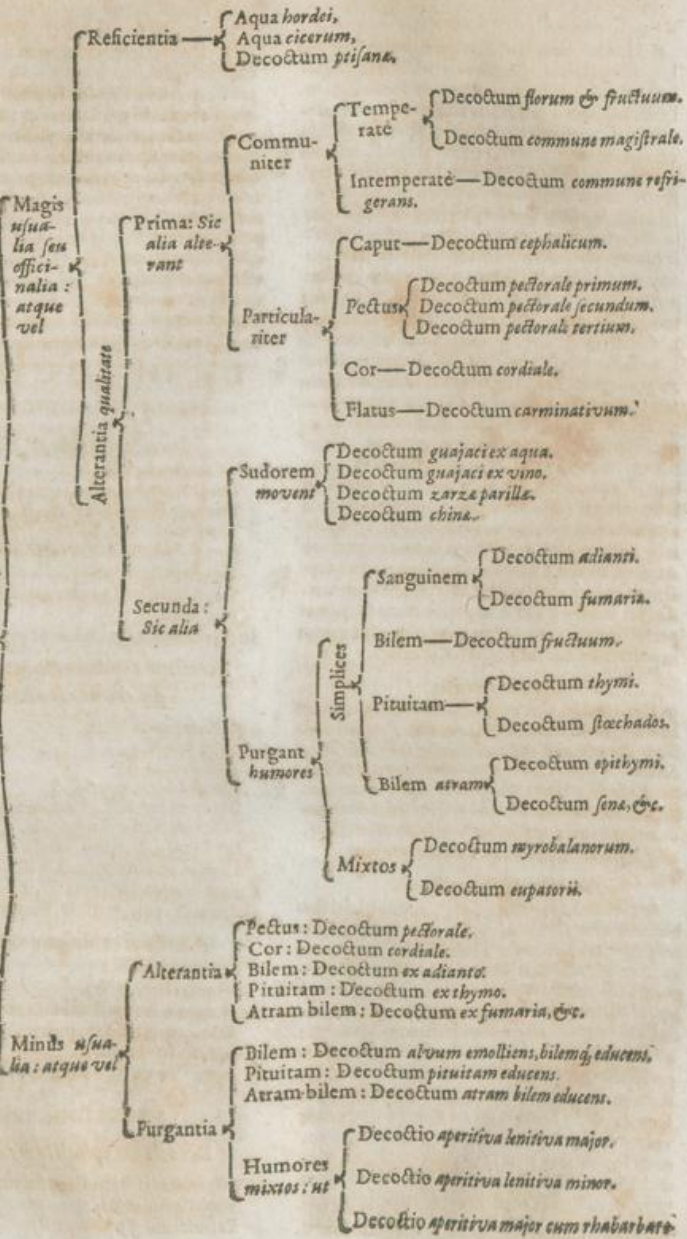 Magis
uſua-
lia ſeu
offici-
nalia :
atque
vel
Reficientia
Aqua hordei,
Aqua cicerum,
Decoctum ptiſanæ.
Alterantia qualitate
Prima: Sic
alia alte-
rant
Commu-
niter
Tempe-
ratè
Decoctum florum & fructuum.
Decoctum commune magiſtrale.
Intemperatè — Decoctum commune refri-
gerans.
Particula-
riter
Caput — Decoctum cephalicum.
Pectus
Decoctum pectorale primum.
Decoctum pectorale ſecundum.
Decoctum pectorale tertium.
Cor — Decoctum cordiale.
Flatus — Decoctum carminativum.
Secunda :
Sic alia
Sudorem
movent
Decoctum guajaci ex aqua.
Decoctum guajaci ex vino.
Decoctum zarzæ parillæ.
Decoctum chinæ.
Purgant
humores
Simplices
Sanguinem
Decoctum adianti.
Decoctum fumariæ.
Bilem — Decoctum fructuum.
Pituitam
Decoctum thymi.
Decoctum ſtœchados.
Bilem atram
Decoctum epithymi.
Decoctum ſenæ, &c.
Mixtos
Decoctum myrobalanorum.
Decoctum eupatorii.
Minus uſua-
lia : atque vel
Alterantia
Pectus : Decoctum pectorale.
Cor : Decoctum cordiale.
Bilem : Decoctum ex adianto.
Pituitam : Decoctum ex thymo.
Atram bilem : Decoctum ex fumaria, &c.
Purgantia
Bilem : Decoctum alvum emolliens, bilemq; educens.
Pituitam : Decoctum pituitam educens.
Atram bilem : Decoctum atram bilem educens.
Humores
mixtos : ut
Decoctio aperitiva lenitiva major.
Decoctio aperitiva lenitiva minor.
Decoctio aperitiva major cum rhabarbaro